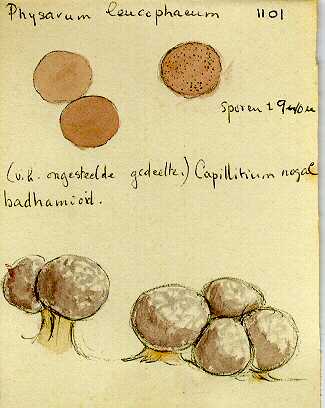 Physarum leucophaeum 1101
Sporen ± 9
(v.h. ongesteelde gedeelte.) Capillitium nogal
badhamioid.